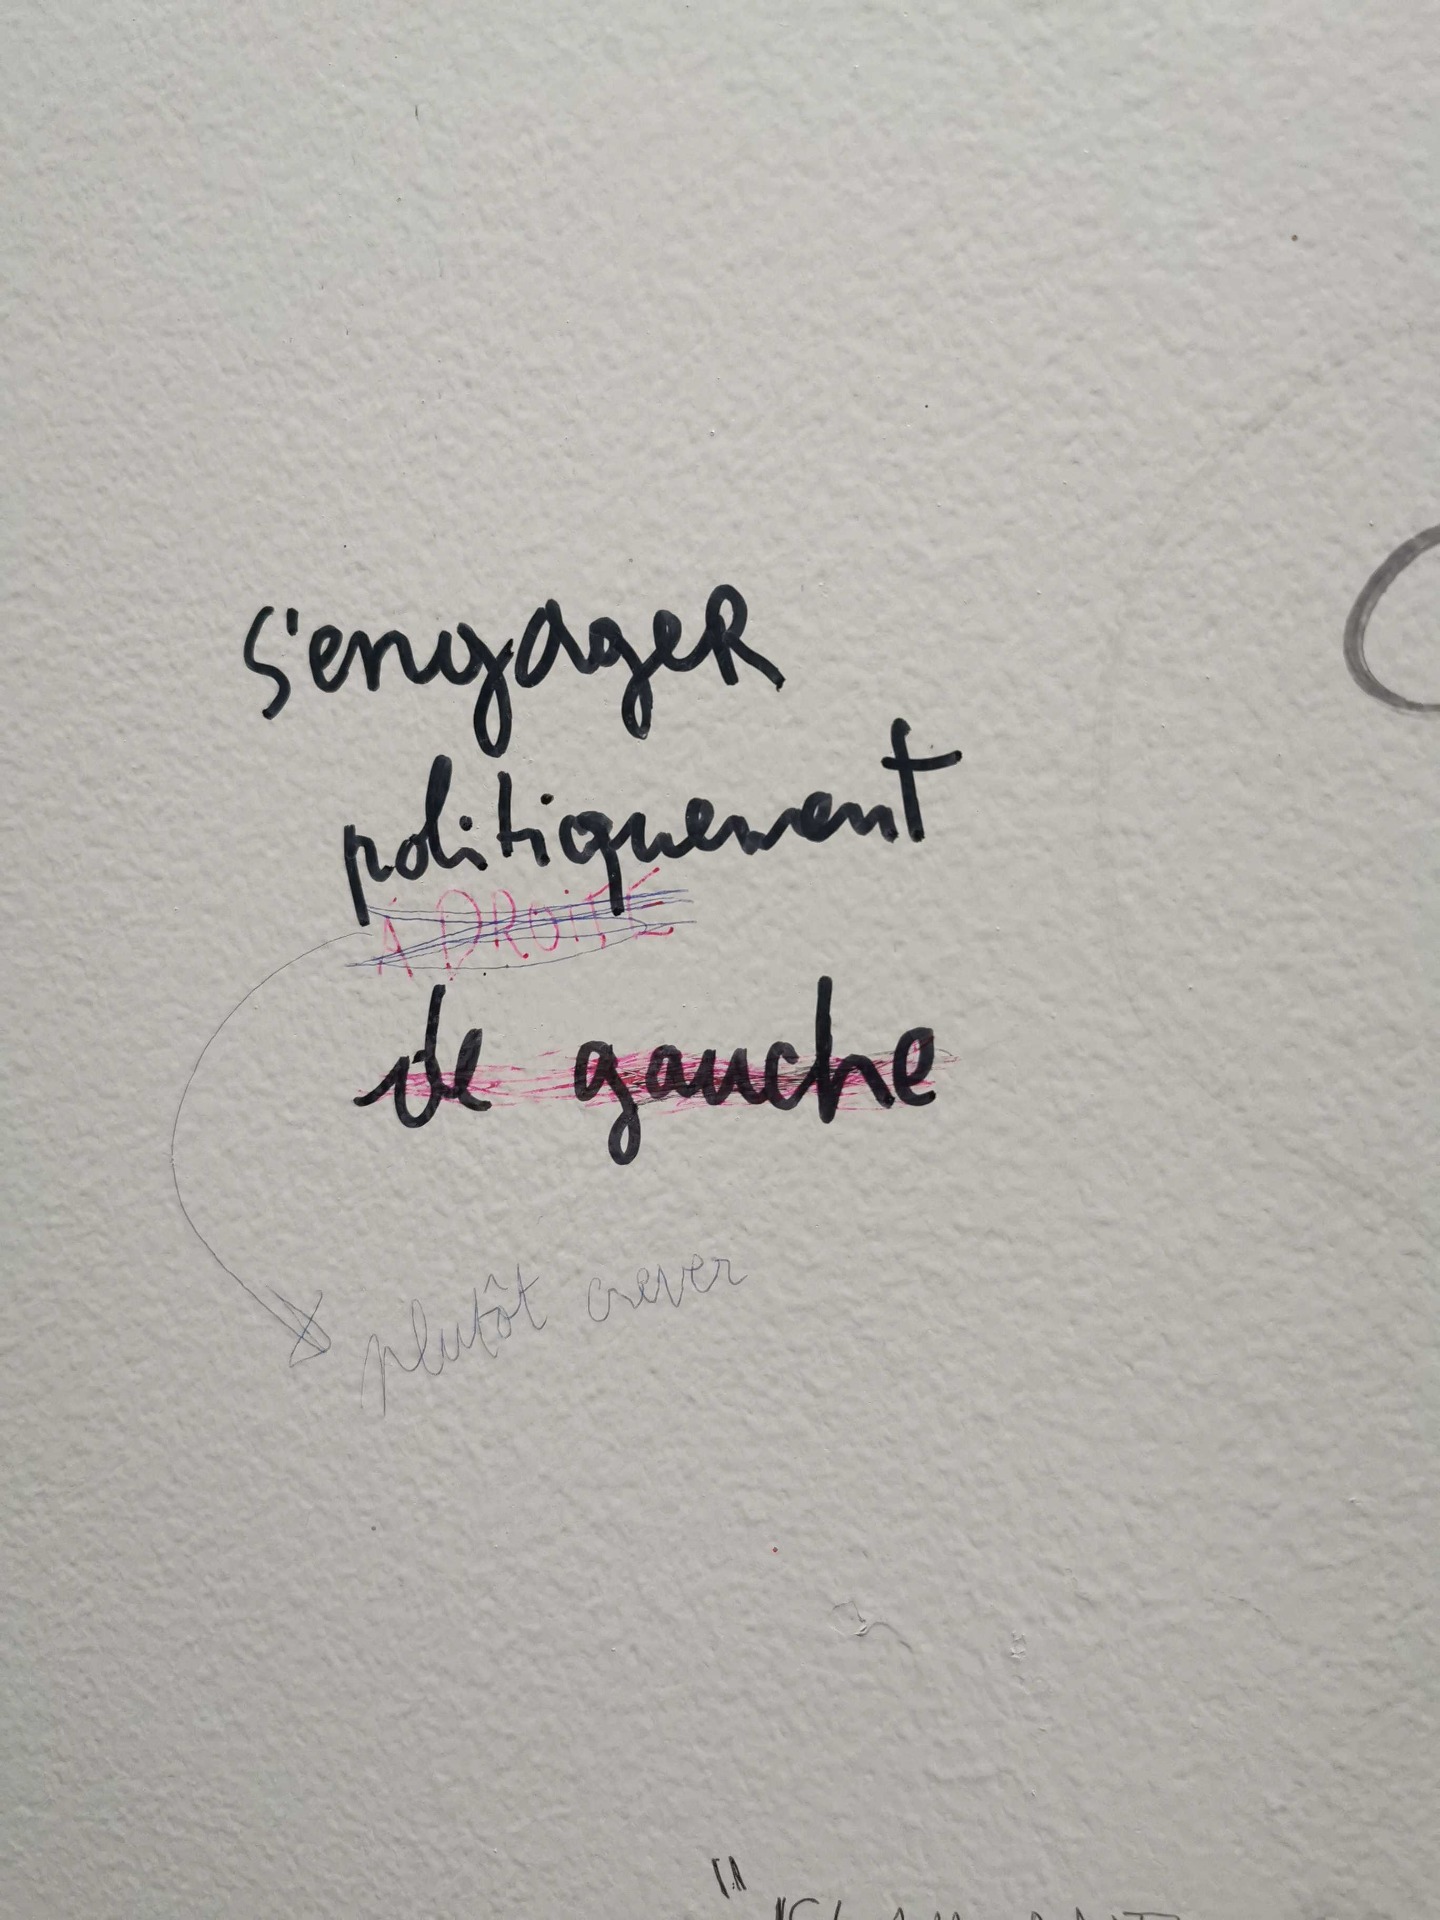 s'engager
politiquement
À DROITE
de gauche
plutôt crever